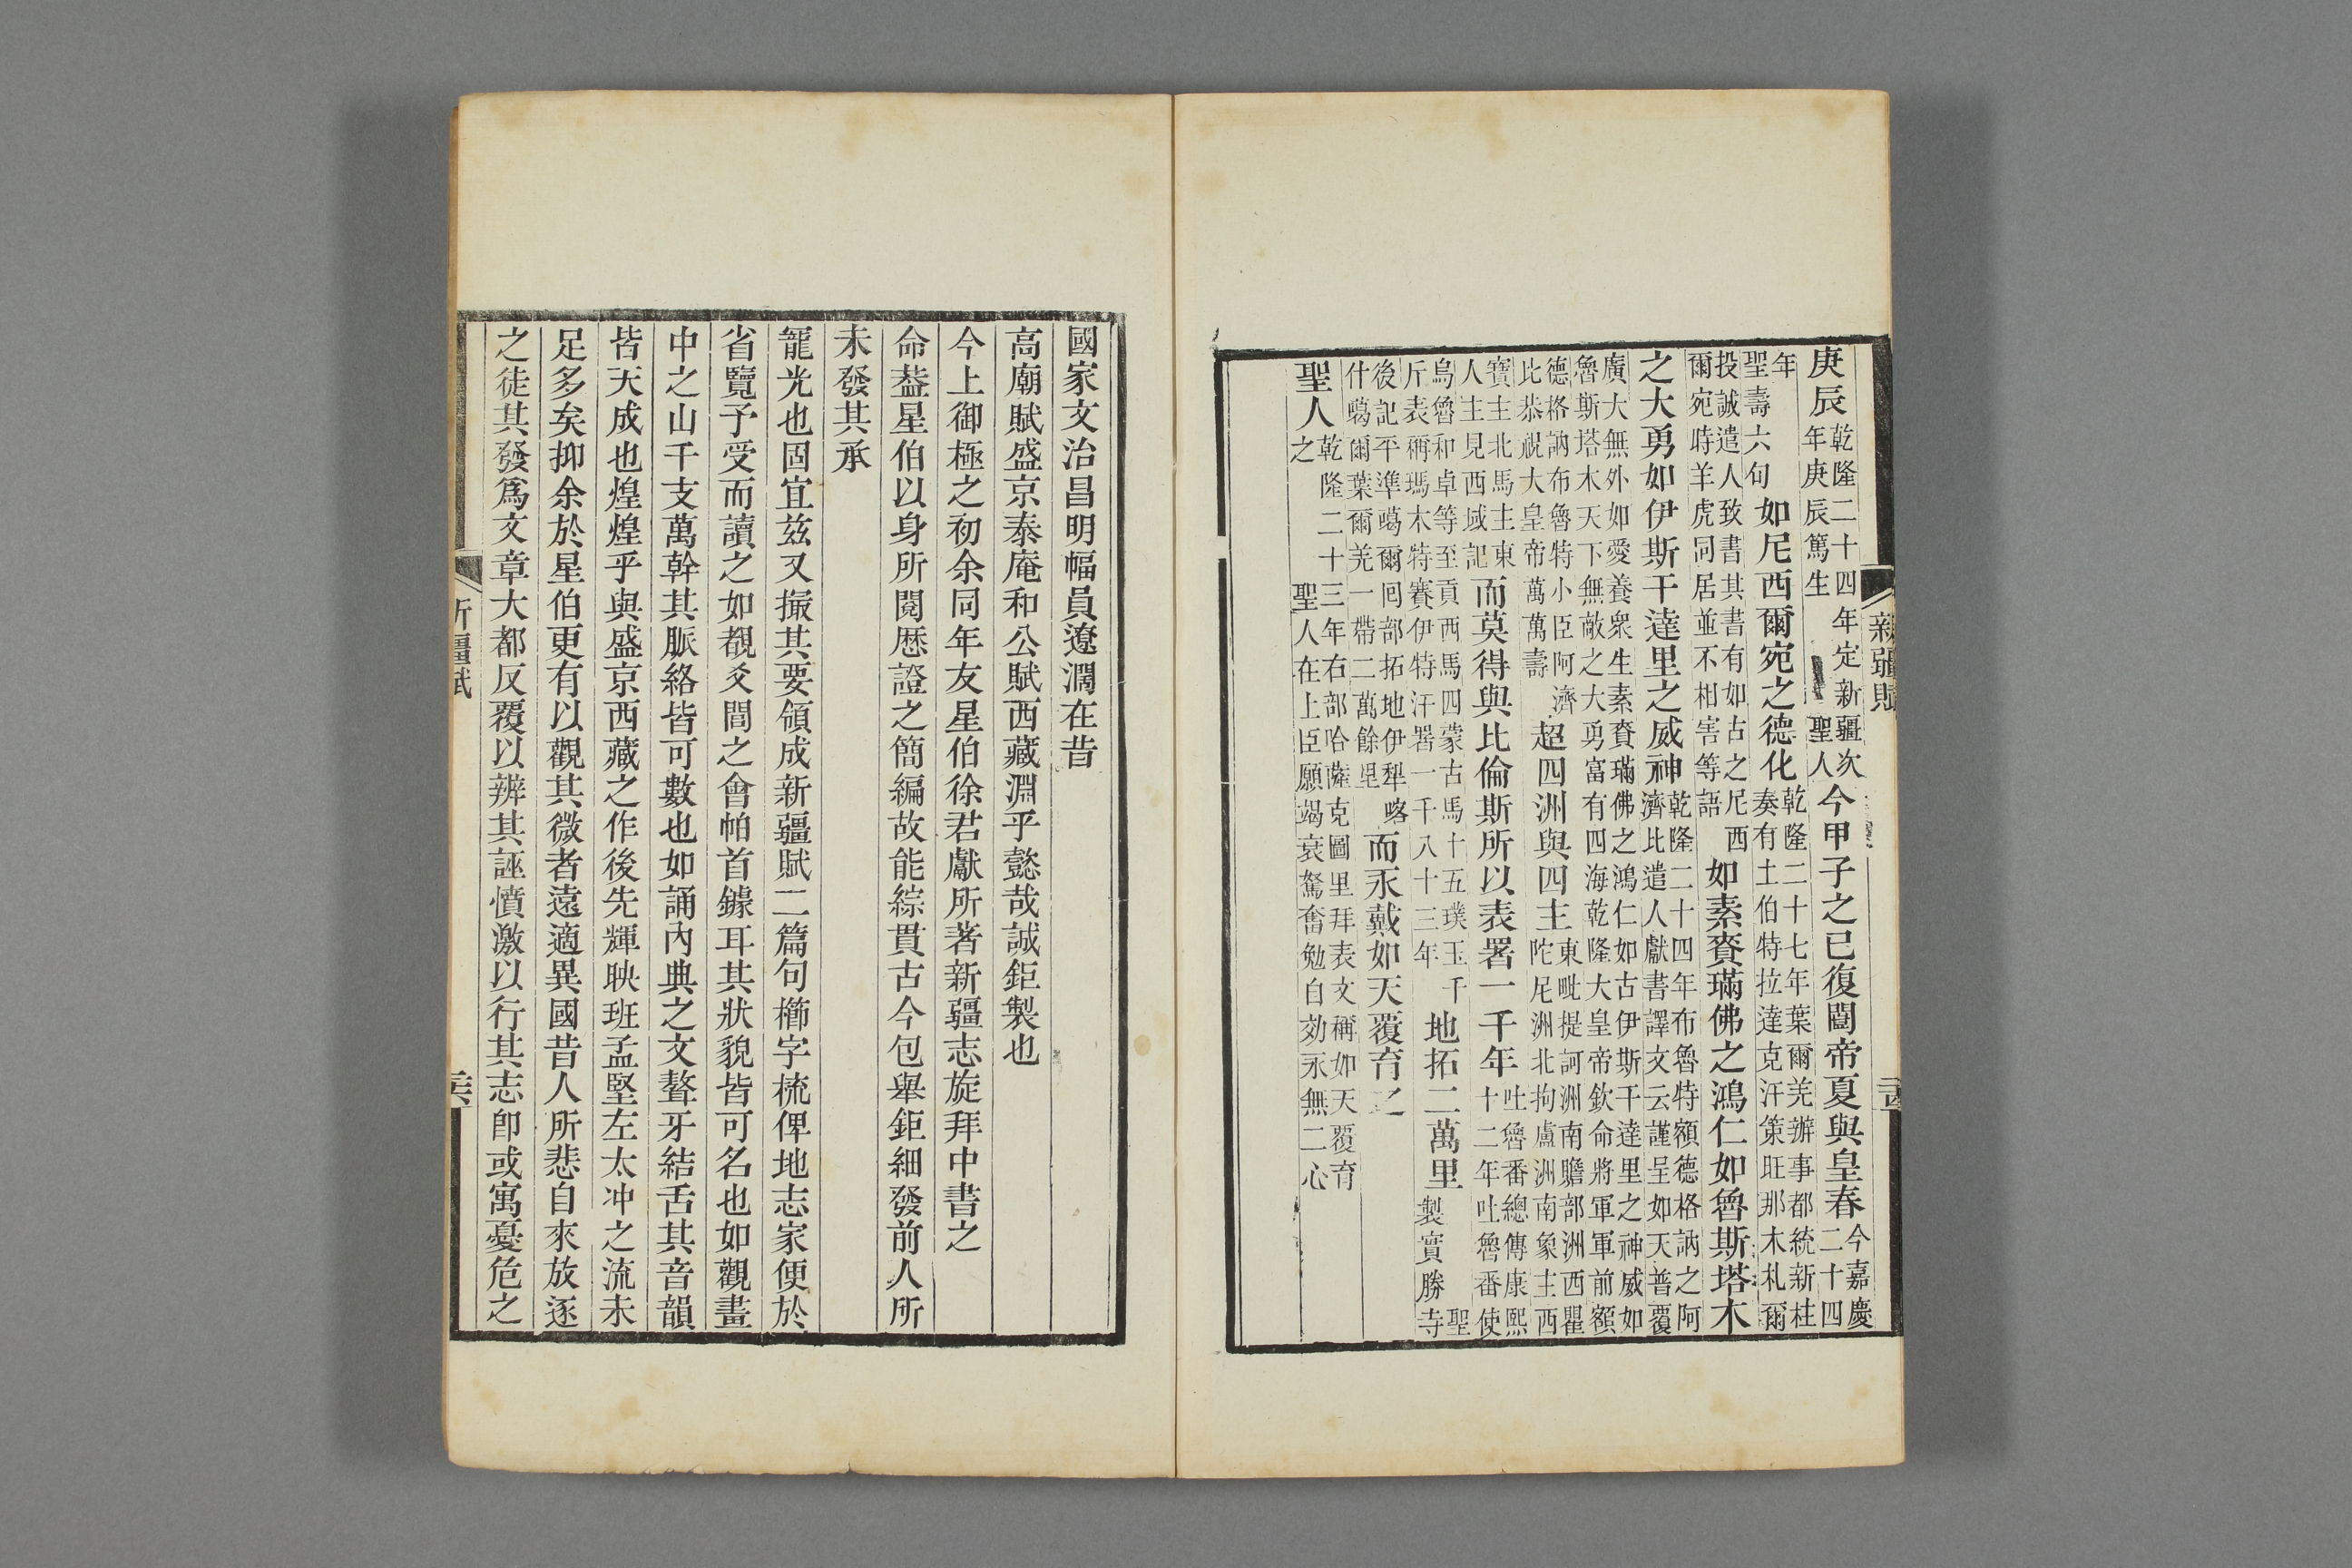 新疆賦
庚辰
乾隆二十四年定新疆次
年庚辰篤生 聖人
今甲子之已復闓帝夏與皇春
今嘉慶
二十四
年
聖壽六旬
如尼西爾宛之德化
乾隆二十七年葉爾羌辦事都統新柱
奏有土伯特拉達克汗策旺那木札爾
投誠遣人致書其書有如古之尼西
爾宛時羊虎同居並不相害等語
如素賚璊佛之鴻仁如魯斯塔木
之大勇如伊斯干達里之威神
乾隆二十四年布魯特額德格訥之阿
濟比遣人獻書譯文云謹呈如天普覆
廣大無外如愛養衆生素賚璊佛之鴻仁如古伊斯干達里之神威如
魯斯塔木天下無敵之大勇富有四海乾隆大皇帝欽命將軍軍前額
德格訥布魯特小臣阿濟
比恭祝大皇帝萬萬壽
超四洲與四主
東毗提訶洲南贍部洲西瞿
陀尼洲北拘盧洲南象主西
寶主北馬主東
人主見西域記
而莫得與比倫斯所以表署一千年
吐魯番總傳康熙
十二年吐魯番使
烏魯和卓等至貢西馬四蒙古馬十五璞玉千
斤表稱瑪木特賽伊特汗署一千八十三年
地拓二萬里
聖
製實勝寺
後記平準噶爾回部拓地伊犁喀
什噶爾葉爾羌一帶二萬餘里
而永戴如天覆育之
聖人
乾隆二十三年右部哈薩克圖里拜表文稱如天覆育
之 聖人在上臣願竭衰駑奮勉自効永無二心
國家文治昌明幅員遼濶在昔
高廟賦盛京泰庵和公賦西藏淵乎懿哉誠鉅製也
今上御極之初余同年友星伯徐君獻所著新疆志旋拜中書之
命葢星伯以身所閱歷證之簡編故能綜貫古今包舉鉅細發前人所
未發其承
寵光也固宜兹又撮其要領成新疆賦二篇句櫛字梳俾地志家便於
省覽予受而讀之如覩爻閭之會帕首鐻耳其狀貌皆可名也如觀畫
中之山千支萬幹其脈絡皆可數也如誦內典之文聱牙結舌其音韻
皆天成也煌煌乎與盛京西藏之作後先輝映班孟堅左太冲之流未
足多矣抑余於星伯更有以觀其微者遠適異國昔人所悲自來放逐
之徒其發爲文章大都反覆以辨其誣憤激以行其志卽或寓憂危之
新疆賦